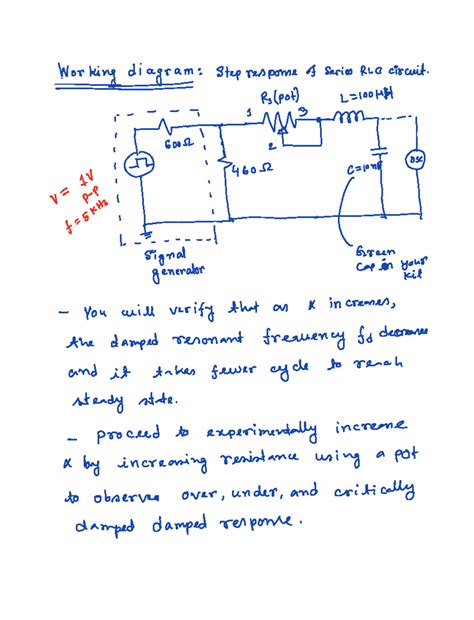 Working diagram: Step response of Series RLC circuit.
Rs(pot)
L=100μH
1
3
2
600Ω
460Ω
C=10nF
DSC
V= 1V
p-p
f=5KHz
Signal
generator
Green
Cap in your
kit
- You will verify that as α increases,
the damped resonant frequency fd decreases
and it takes fewer cycle to reach
steady state.
- Proceed to experimentally increase
α by increasing resistance using a pot
to observe over, under, and critically
damped damped response.